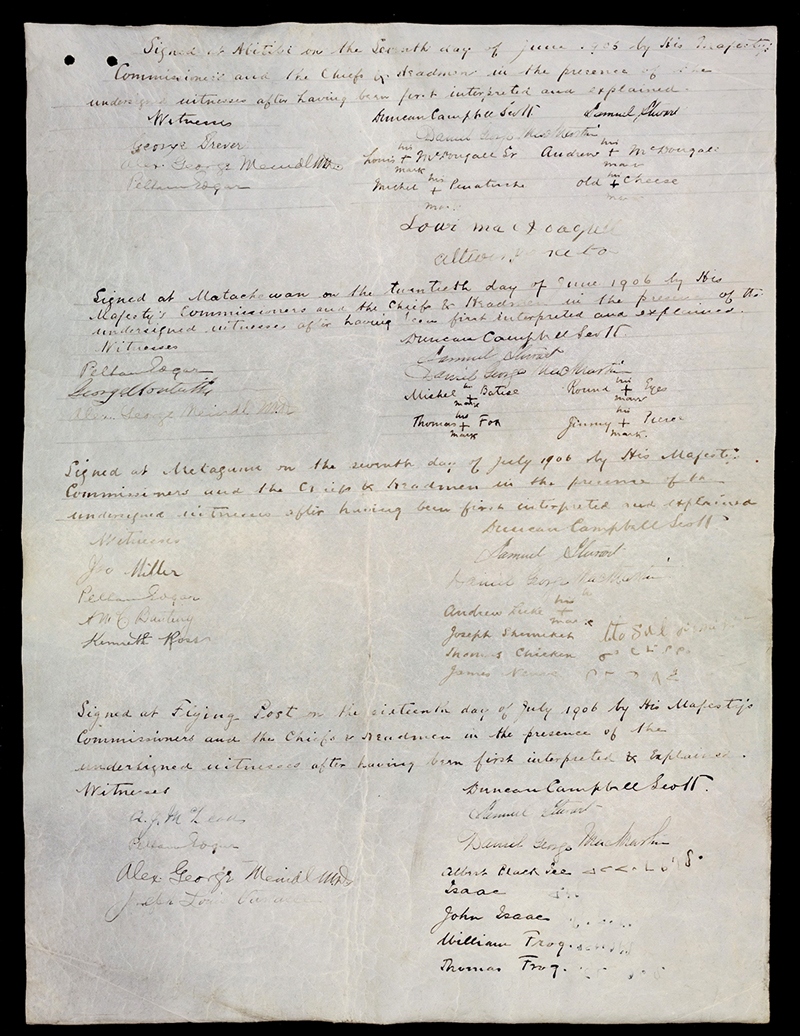 Signed at Abitibi on the Seventh day of June 1906 by His Majesty's
Commissioners and the Chiefs & Headmen in the presence of the
undersigned witnesses after having been first interpreted and explained.
Witnesses
Duncan Campbell Scott Samuel Stewart
George Drever
Daniel George MacMartin
Alex. George Meindl MD.
Louis his + mark McDougall Sr Andrew his + mark McDougall
Pelham Edgar
Michel his + mark Penatuche old his + Cheese
Signed at Matachewan on the twentieth day of June 1906 by His
Majesty's Commissioners and the Chiefs & Headmen in the presence of the
undersigned witnesses after having been first interpreted and explained.
Witnesses
Duncan Campbell Scott
Pelham Edgar
Samuel Stewart
George
Daniel George MacMartin
Alex. George Meindl MD.
Michel his + mark Batise Round his + mark Eyes
Thomas his + mark Fox Jimmy his + mark Pierce
Signed at Metagama on the seventh day of July 1906 by His Majesty's
Commissioners and the Chiefs & Headmen in the presence of the
undersigned witnesses after having been first interpreted and explained
Witnesses
Duncan Campbell Scott
Jno Miller
Samuel Stewart
Pelham Edgar
Daniel George MacMartin
A M C Banting
Andrew Luke his + mark
Kenneth Ross
Joseph Shemeket
Thomas Chicken
James
Signed at Flying Post on the sixteenth day of July 1906 by His Majesty's
Commissioners and the Chiefs & Headmen in the presence of the
undersigned witnesses after having been first interpreted & Explained.
Witnesses
Duncan Campbell Scott.
A. J. McLeod
Samuel Stewart
Pelham Edgar
Daniel George MacMartin
Alex George Meindl MD.
Albert Black Ice
Isaac
John Isaac
William Frog.
Thomas Frog.